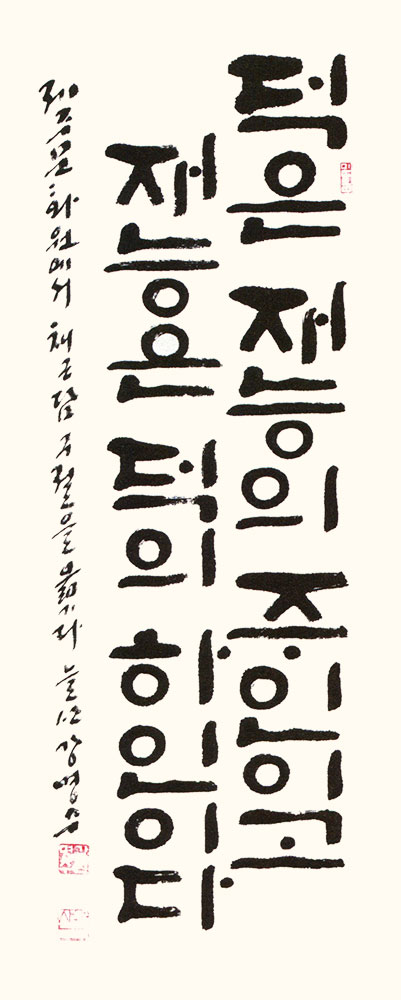 덕은 재능의 주인이고
재능은 덕의 하인이다
화원에서 채근담 구절을 옮기다 늘산